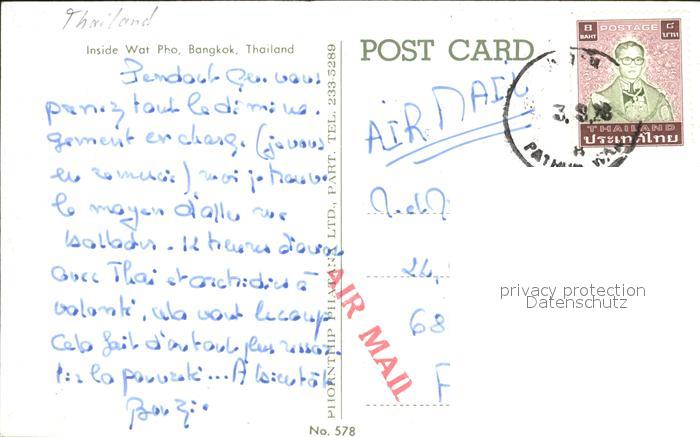 Thailand
Inside Wat Pho, Bangkok, Thailand
POST CARD
8
BAHT
POSTAGE
๘
บาท
THAILAND
ประเทศไทย
AIR MAIL
Pendant que vous
prenez tout le déménagement
gement en charge (je vous
en remercie) moi je trouve
le moyen d'aller me
ballader. 12 heures d'avion
avec Thai et orchidées à
volonté, cela vaut le coup
Cela fait d'autant plus ressor-
tir la pauvreté... A bientôt
24,
68
F
AIR MAIL
PHORNTHIP PHATANA LTD., PART. TEL. 233-5289
No. 578
privacy protection
Datenschutz